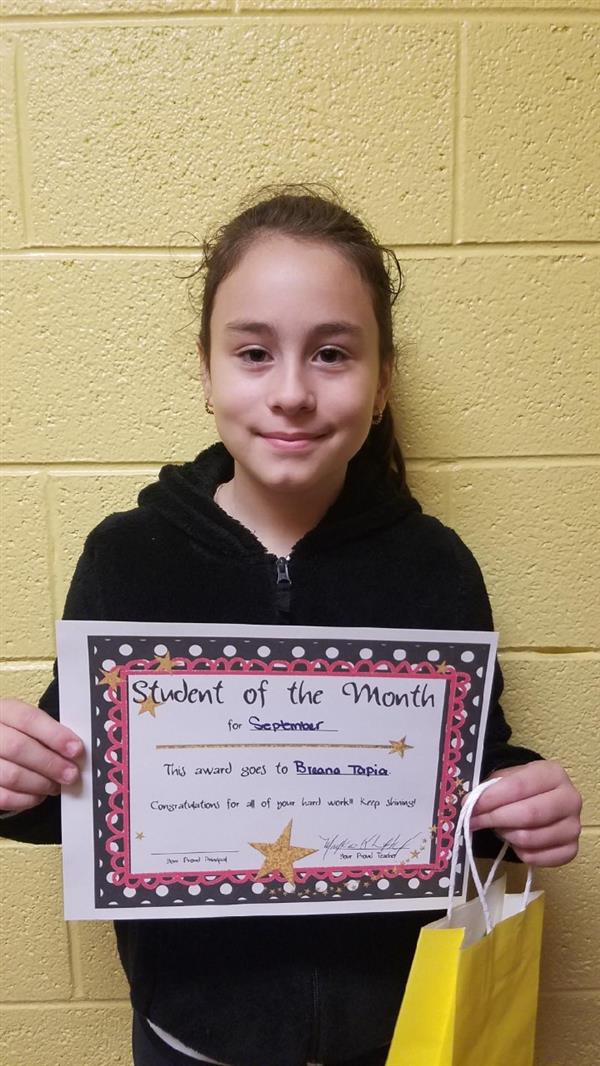 Student of the Month
for September
This award goes to Breana Tapia
Congratulations for all of your hard work!! Keep shining!
Your Proud Principal
Your Proud Teacher